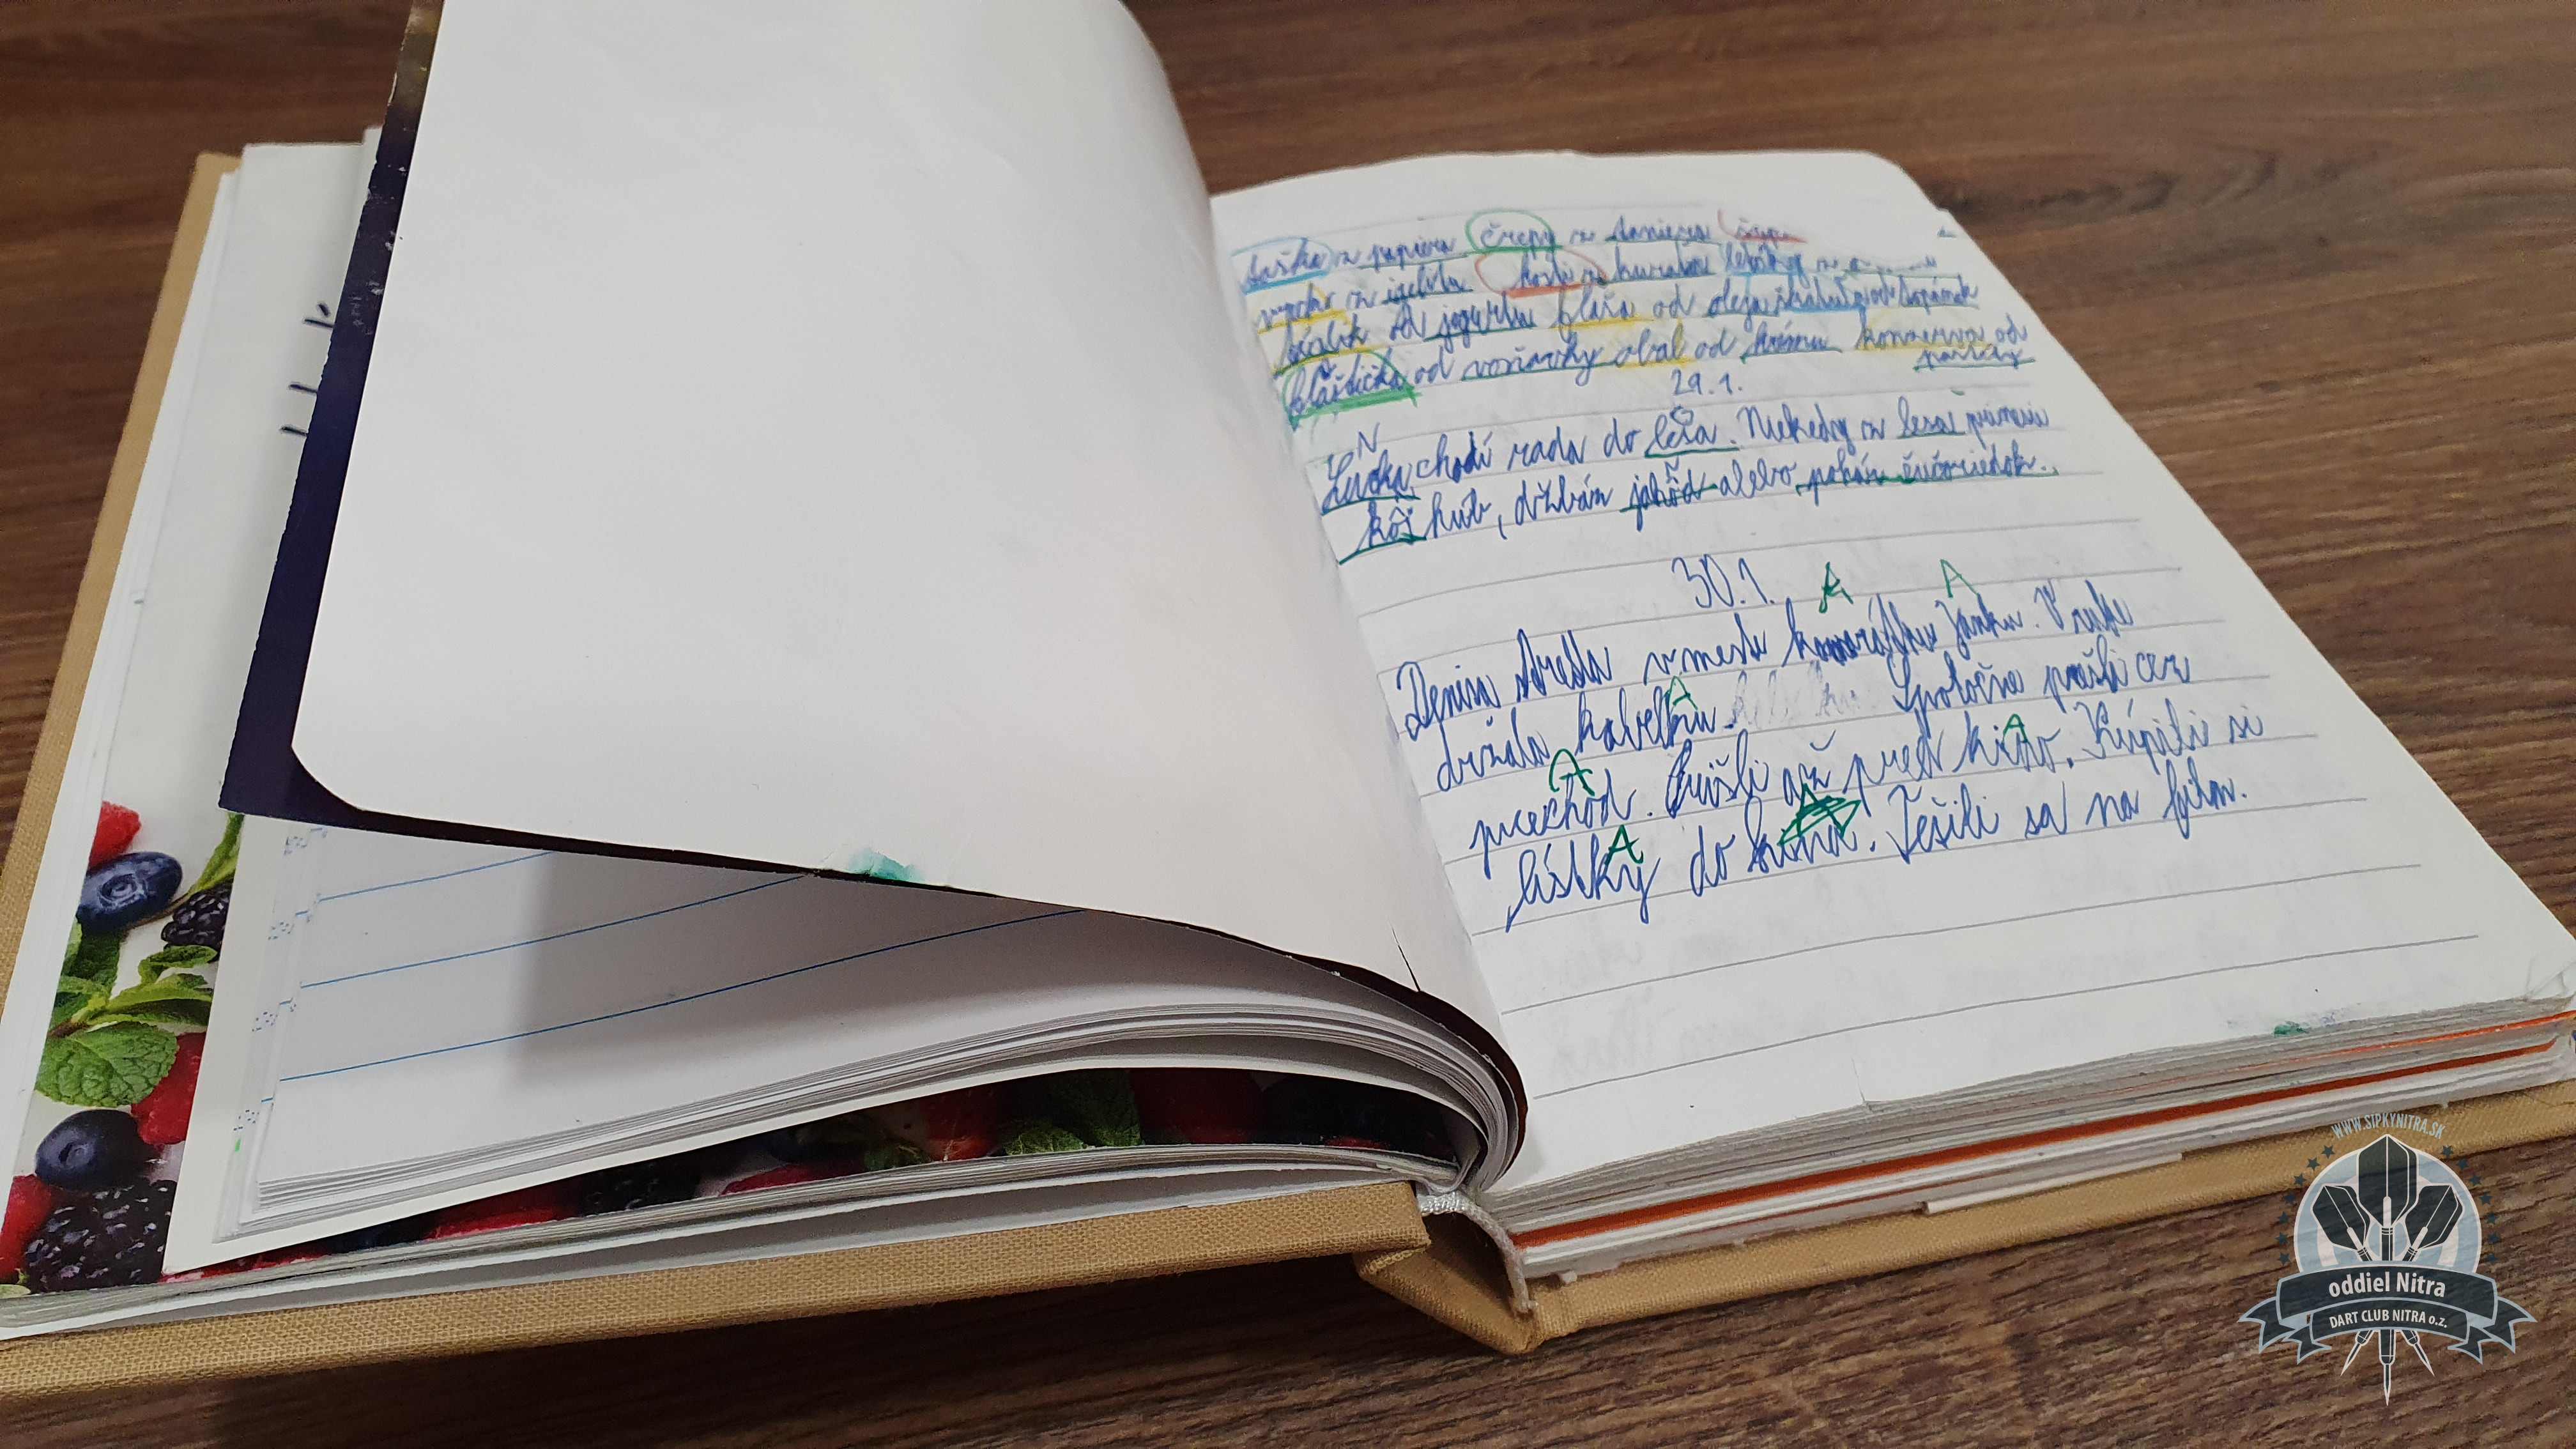 taška z papiera črepy z taniera
vrecko z igelitu kosti z kuraťa letáky z
téglik od jogurtu fľaša od oleja škatuľa od topánok
fľaštička od voňavky obal od krému konzerva od
paštéky
29.1.
N G
Lenka chodí rada do lesa. Niekedy z lesa prinesie
kôš húb, džbán jahôd alebo pohár čučoriedok.
30.1.
A A
Denisa stretla v meste kamarátku Janku. V ruke
A
držala kabelku. Spoločne prešli cez
A A
priechod. Prišli až pred kino. Kúpili si
A
lístky do kina. Tešili sa na film.
WWW.SIPKYNITRA.SK
oddiel Nitra
DART CLUB NITRA o.z.